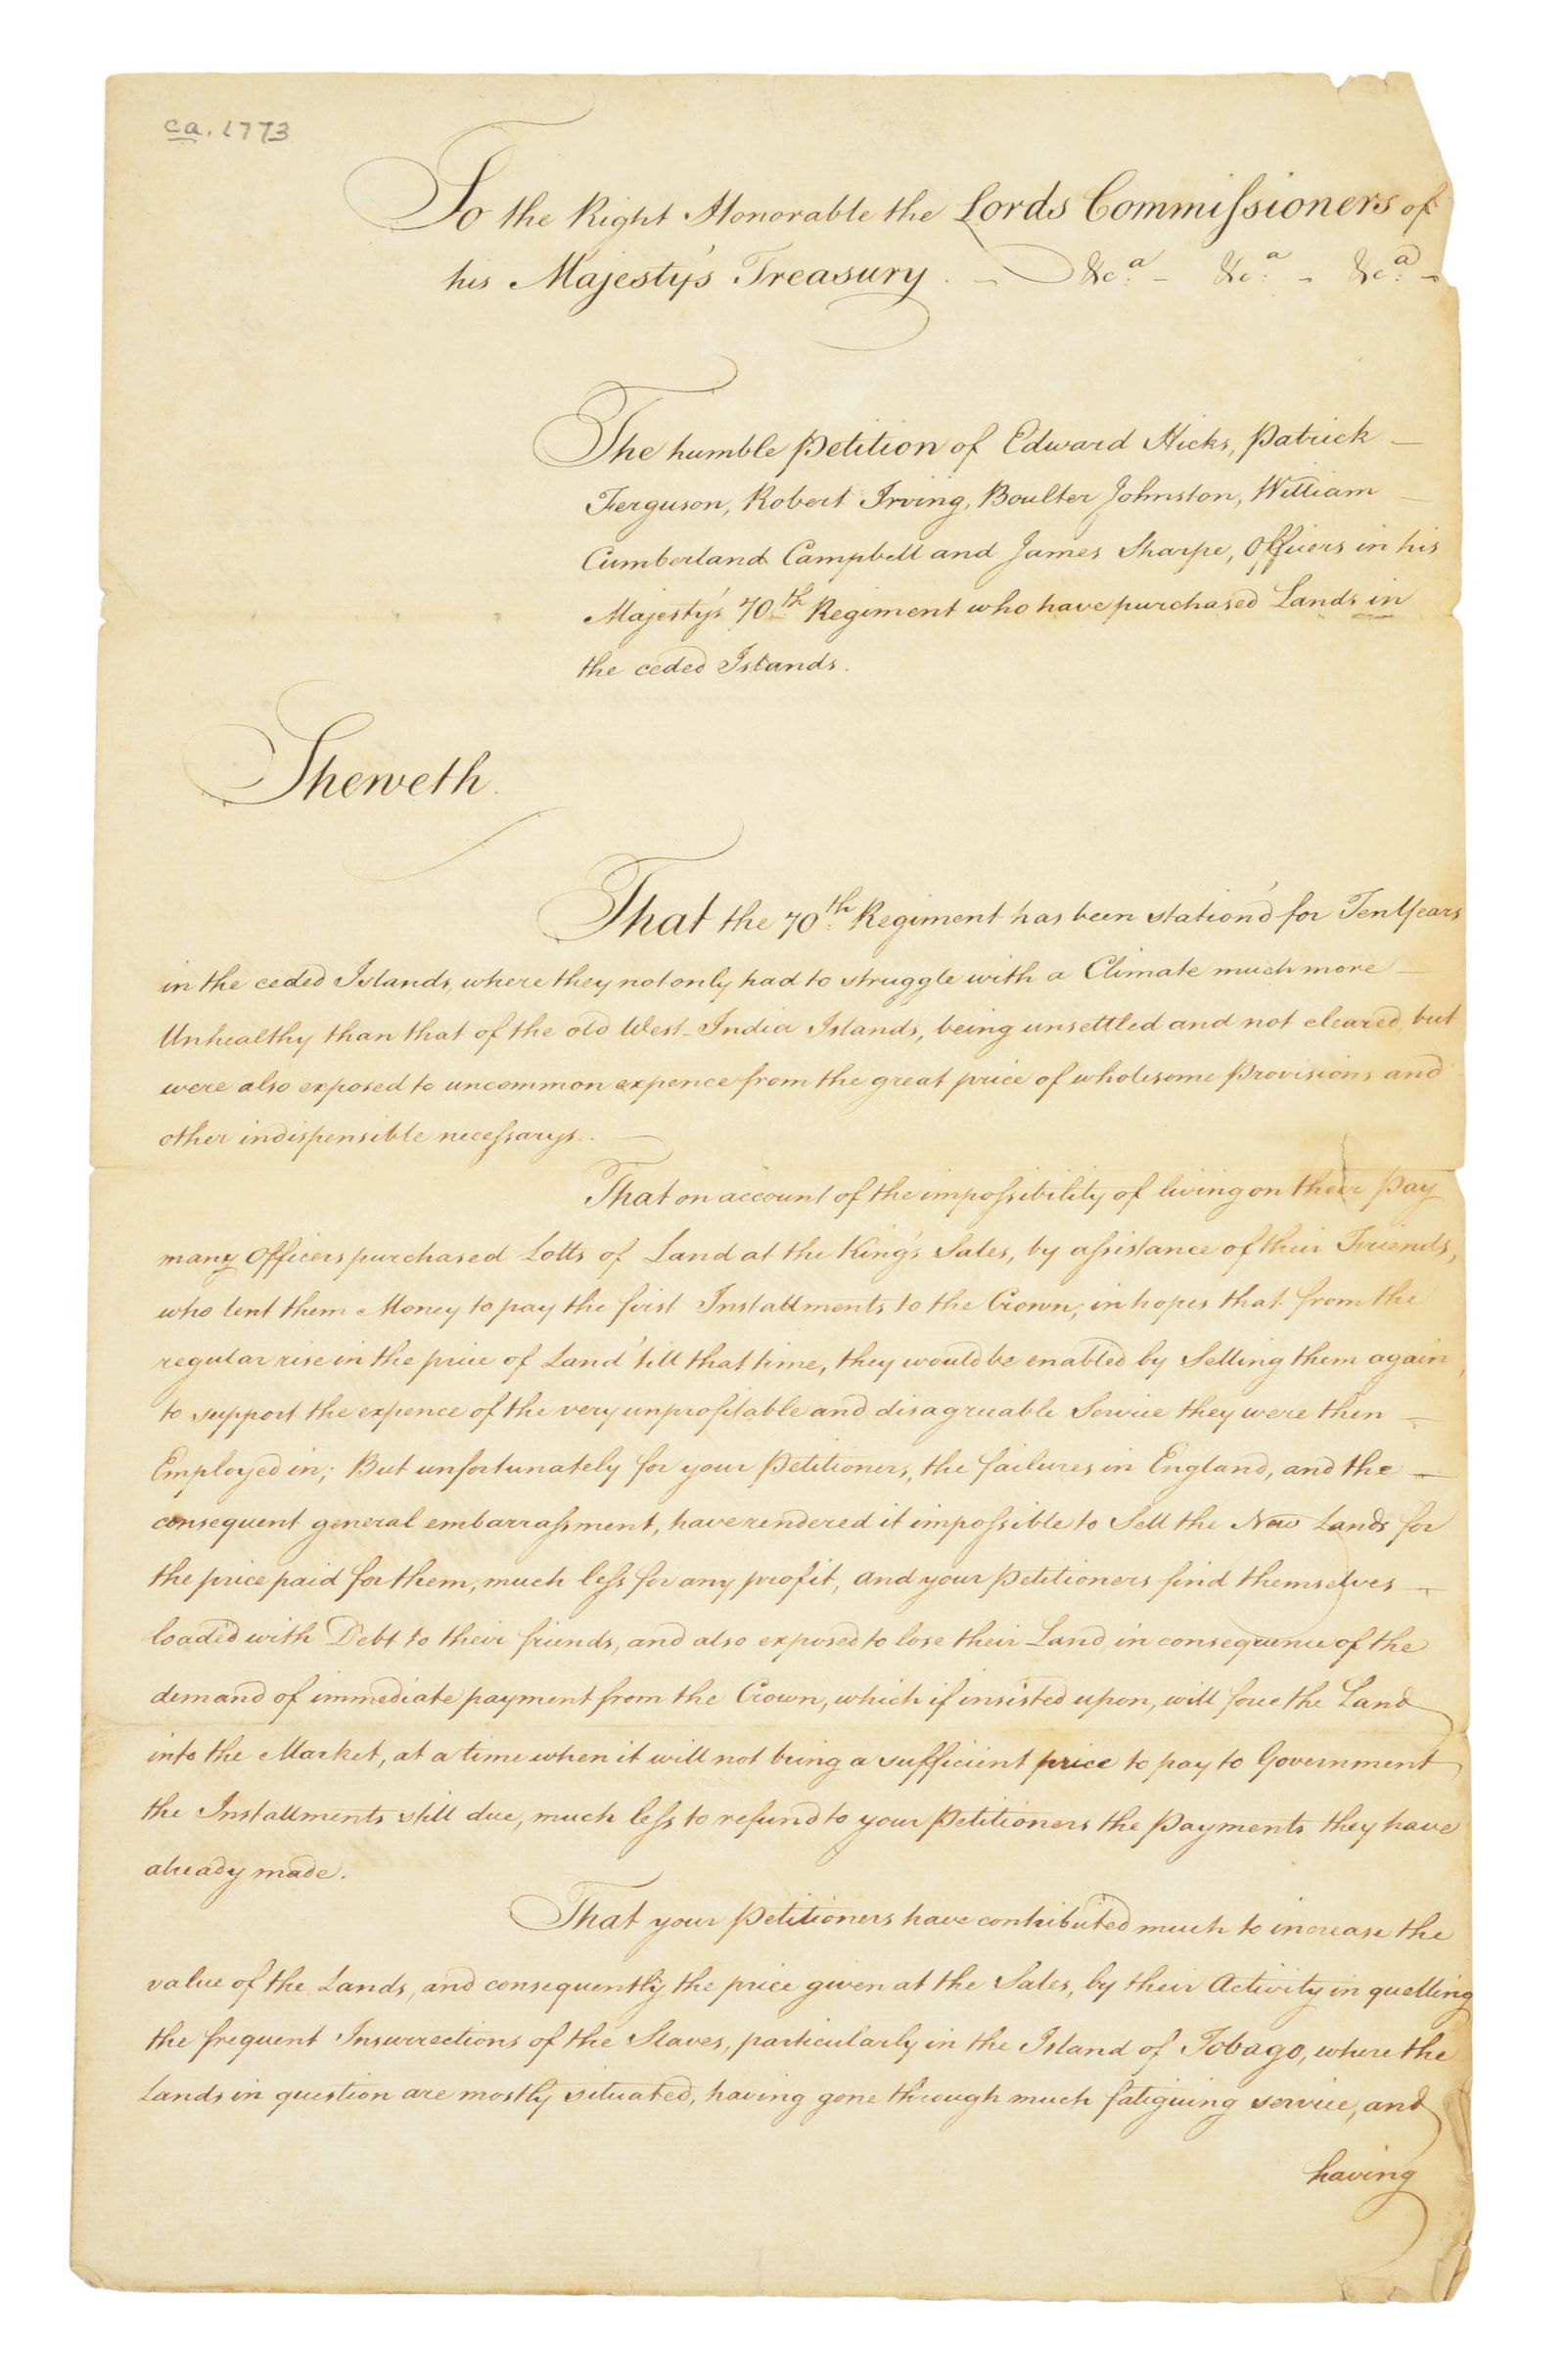 ca. 1773
To the Right Honorable the Lords Commissioners of
his Majesty's Treasury. – &c.a – &c.a – &c.a –
The humble Petition of Edward Hicks, Patrick –
Ferguson, Robert Irving, Boulter Johnston, William –
Cumberland Campbell and James Sharpe, Officers in his
Majesty's 70th Regiment who have purchased Lands in
the ceded Islands.
Sheweth.
That the 70th Regiment has been station'd for Ten Years
in the ceded Islands, where they not only had to struggle with a Climate much more –
Unhealthy than that of the old West-India Islands, being unsettled and not cleared, but
were also exposed to uncommon expence from the great price of wholesome Provisions and
other indispensible necessarys. –
That on account of the impossibility of living on their Pay
many Officers purchased Lotts of Land at the King's Sales, by assistance of their Friends,
who lent them Money to pay the first Installments to the Crown; in hopes that from the
regular rise in the price of Land 'till that time, they would be enabled by Selling them again,
to support the expence of the very unprofitable and disagreable Service they were then –
Employed in; But unfortunately for your Petitioners, the failures in England, and the –
consequent general embarrassment, have rendered it impossible to Sell the New Lands for
the price paid for them, much less for any profit, and your Petitioners find themselves –
loaded with Debt to their friends, and also exposed to lose their Land, in consequence of the
demand of immediate payment from the Crown, which if insisted upon, will force the Land
into the Market, at a time when it will not bring a sufficient price to pay to Government
the Installments still due, much less to refund to your Petitioners the Payments they have
already made.
That your Petitioners have contributed much to increase the
value of the Lands, and consequently the price given at the Sales, by their Activity in quelling
the frequent Insurrections of the Slaves, particularly in the Island of Tobago, where the
Lands in question are mostly situated, having gone through much fatiguing service, and
having